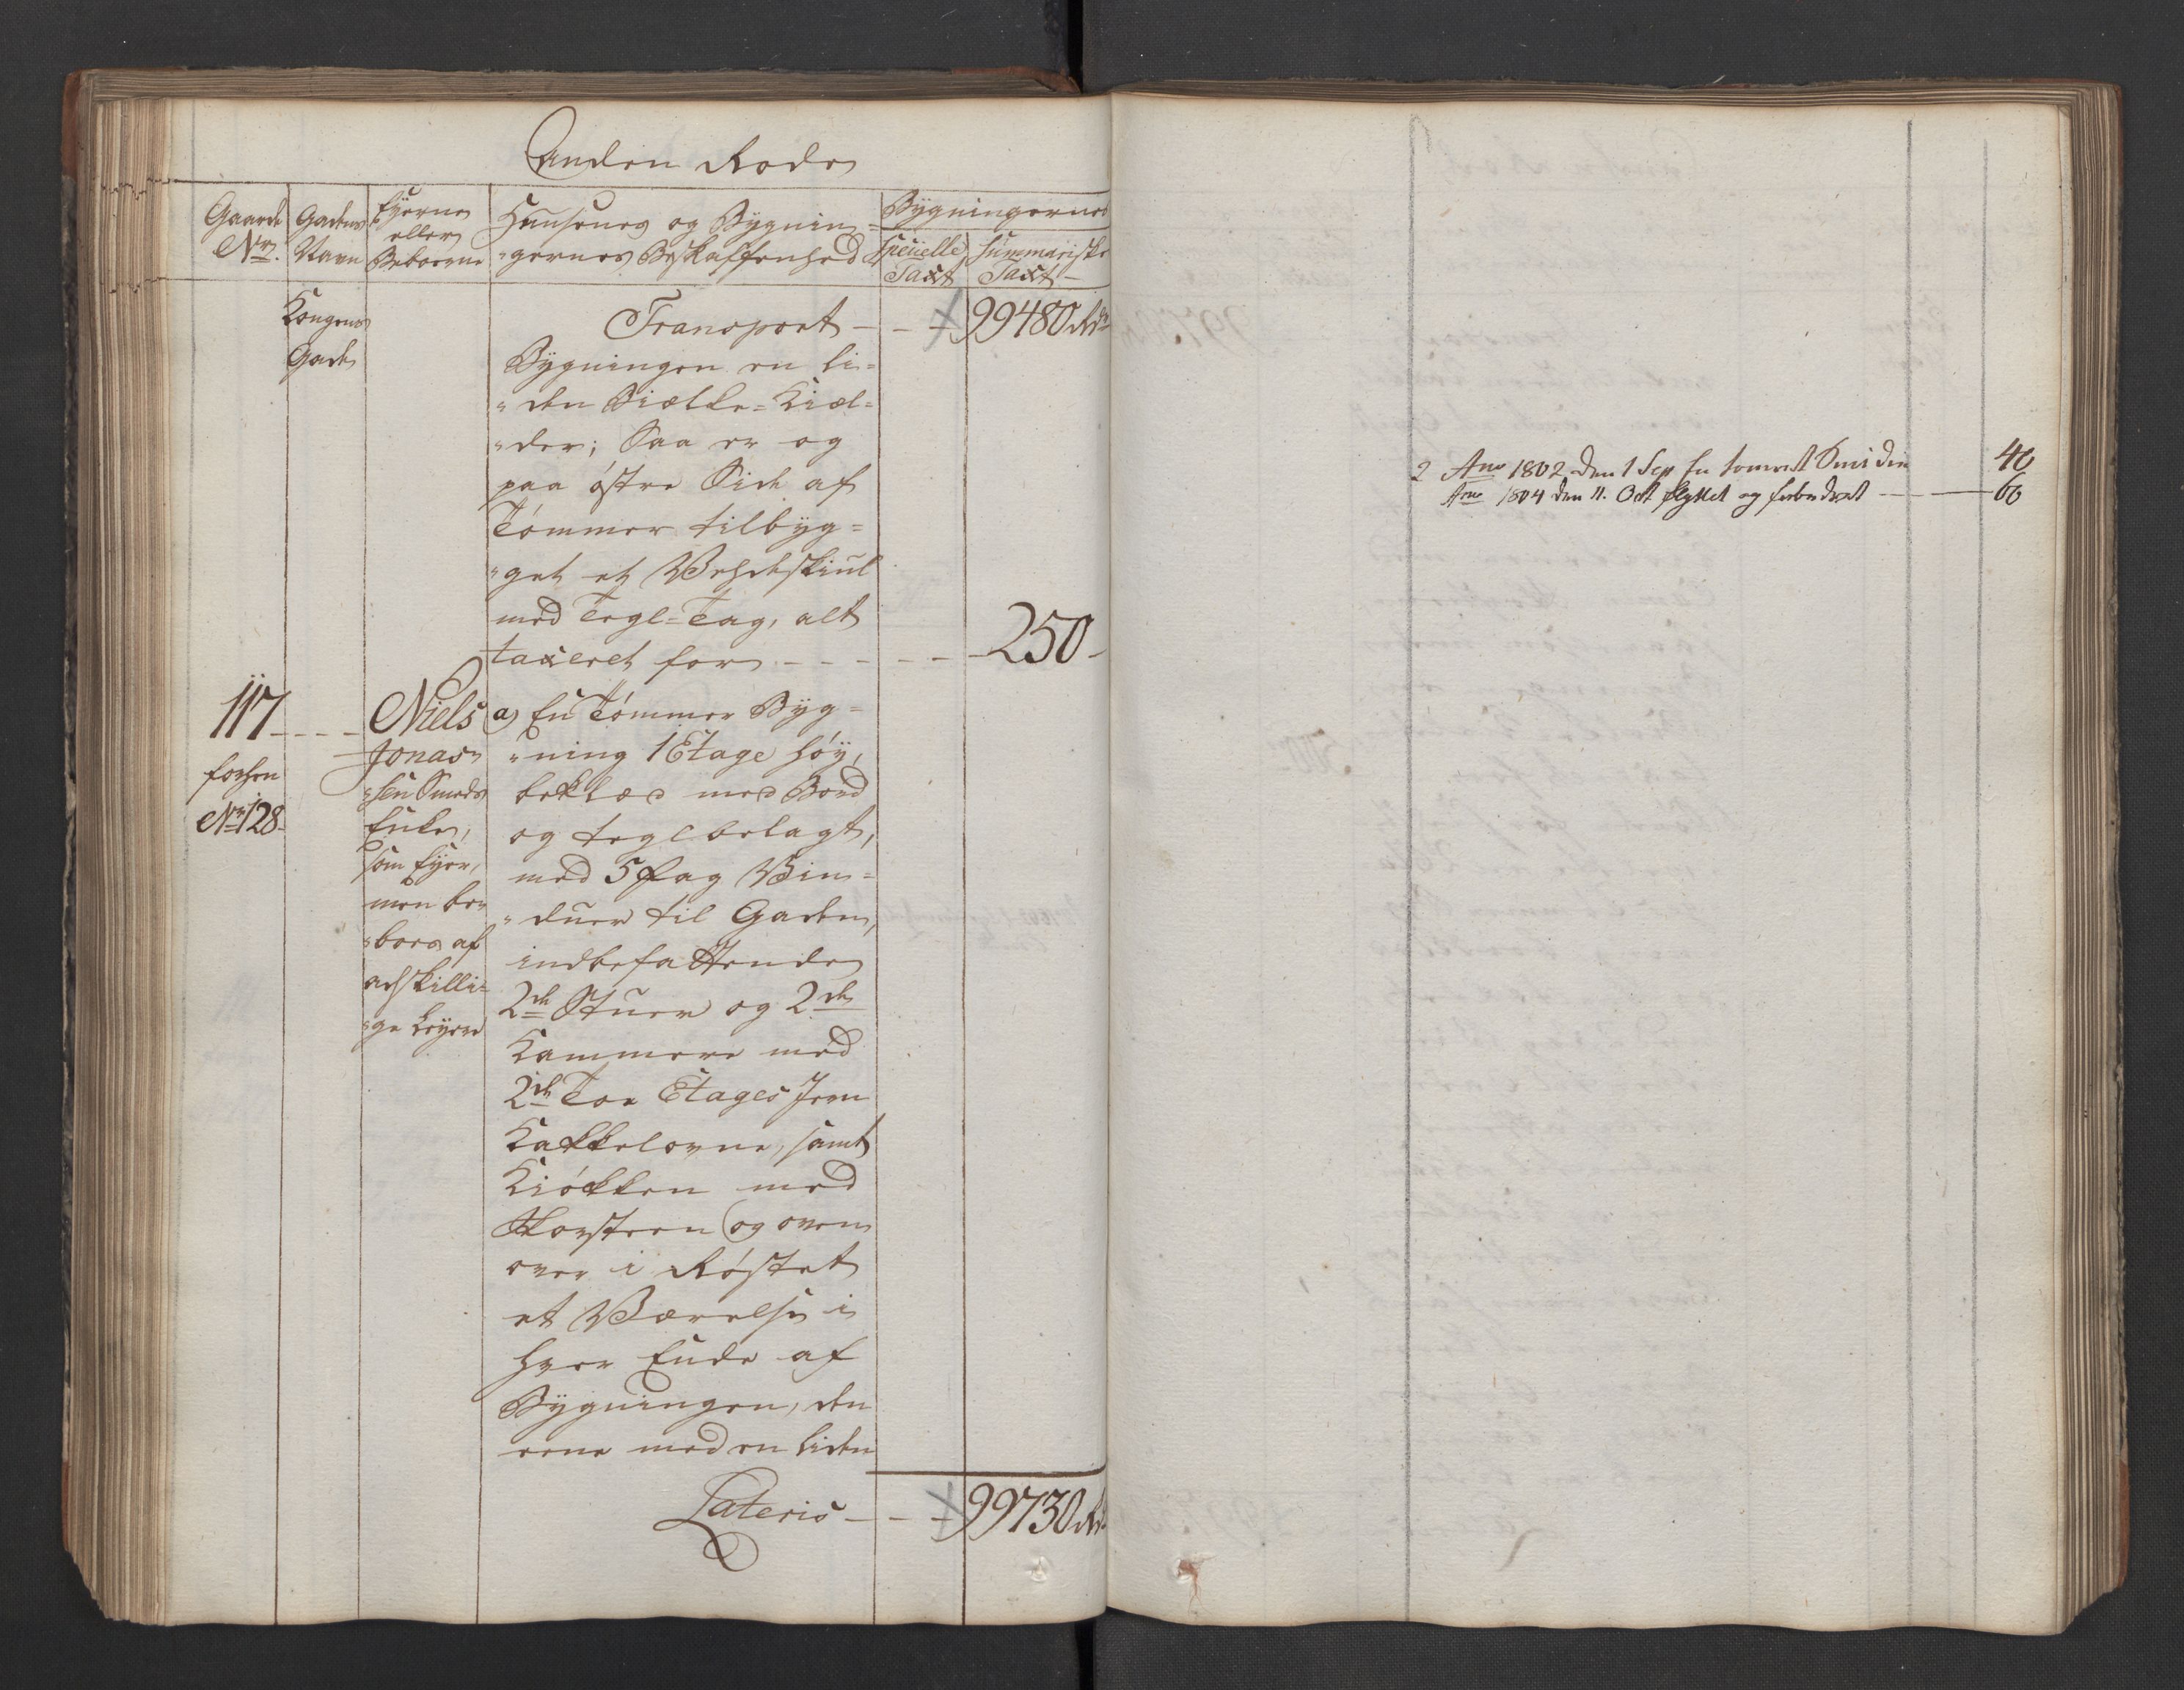 Anden Rode
Gaarde No. | Gadens Navn | Eyerne eller Beboerne | Huusenes og Bygnin=gernes Beskaffenhed | Bygningernes specielle Taxt | summariske Taxt
Kongens
Gade
Transport - - - 99480 Rdr
Bygningen en li=
"den Biælke=Kiæl=
"der; Saa er og
paa östre Side af
Tömmer tilbÿg=
"get et Vedeskiul
med Tegl=Tag, alt
taxeret for - - - - - 250-
117 - - - -
forhen
No 128.
Niels
Jonas"
"sen Smeds
Enke,
som Eyer,
men be"
"boes af
adskilli=
"ge Leyere
a) En Tömmer Bÿg=
"ning 1 Etage höÿ,
beklæd med Bord
og teglbelagt,
med 5 Fag Vin=
"duer til Gaden,
indbefattende
2de Stuer og 2de
Kammere med
2de Toe Etages Jern
Kakkelovne, samt
Kiökken med
Skorsteen og oven
over i Röstet
et Værelse i
hver Ende af
Bÿgningen, den
eene med en liden
Lateris - - - 99730 Rdr
2 Ano 1802 den 1 Sep En tomret 40
Ano 1804 den 11. Oct flyttet og forbedret - 60